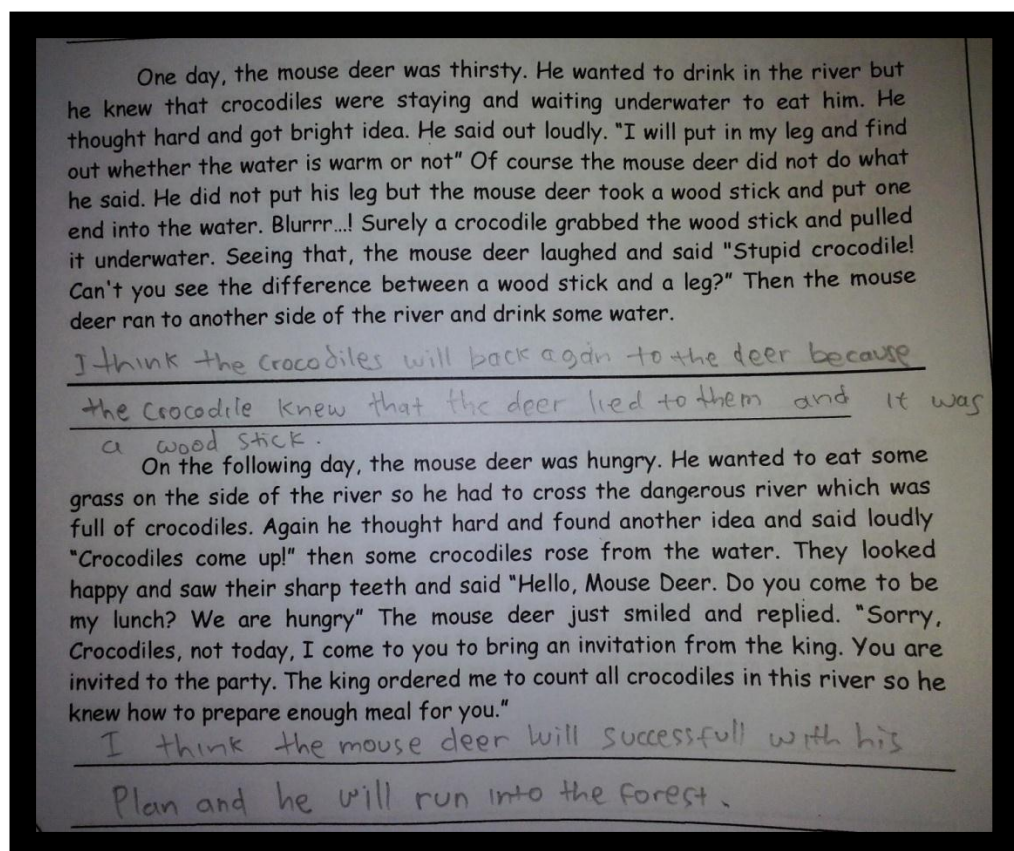 One day, the mouse deer was thirsty. He wanted to drink in the river but
he knew that crocodiles were staying and waiting underwater to eat him. He
thought hard and got bright idea. He said out loudly. "I will put in my leg and find
out whether the water is warm or not" Of course the mouse deer did not do what
he said. He did not put his leg but the mouse deer took a wood stick and put one
end into the water. Blurrr...! Surely a crocodile grabbed the wood stick and pulled
it underwater. Seeing that, the mouse deer laughed and said "Stupid crocodile!
Can't you see the difference between a wood stick and a leg?" Then the mouse
deer ran to another side of the river and drink some water.
I think the crocodiles will back again to the deer because
the crocodile knew that the deer lied to them and it was
a wood stick.
On the following day, the mouse deer was hungry. He wanted to eat some
grass on the side of the river so he had to cross the dangerous river which was
full of crocodiles. Again he thought hard and found another idea and said loudly
"Crocodiles come up!" then some crocodiles rose from the water. They looked
happy and saw their sharp teeth and said "Hello, Mouse Deer. Do you come to be
my lunch? We are hungry" The mouse deer just smiled and replied. "Sorry,
Crocodiles, not today, I come to you to bring an invitation from the king. You are
invited to the party. The king ordered me to count all crocodiles in this river so he
knew how to prepare enough meal for you."
I think the mouse deer will successfull with his
Plan and he will run into the forest.